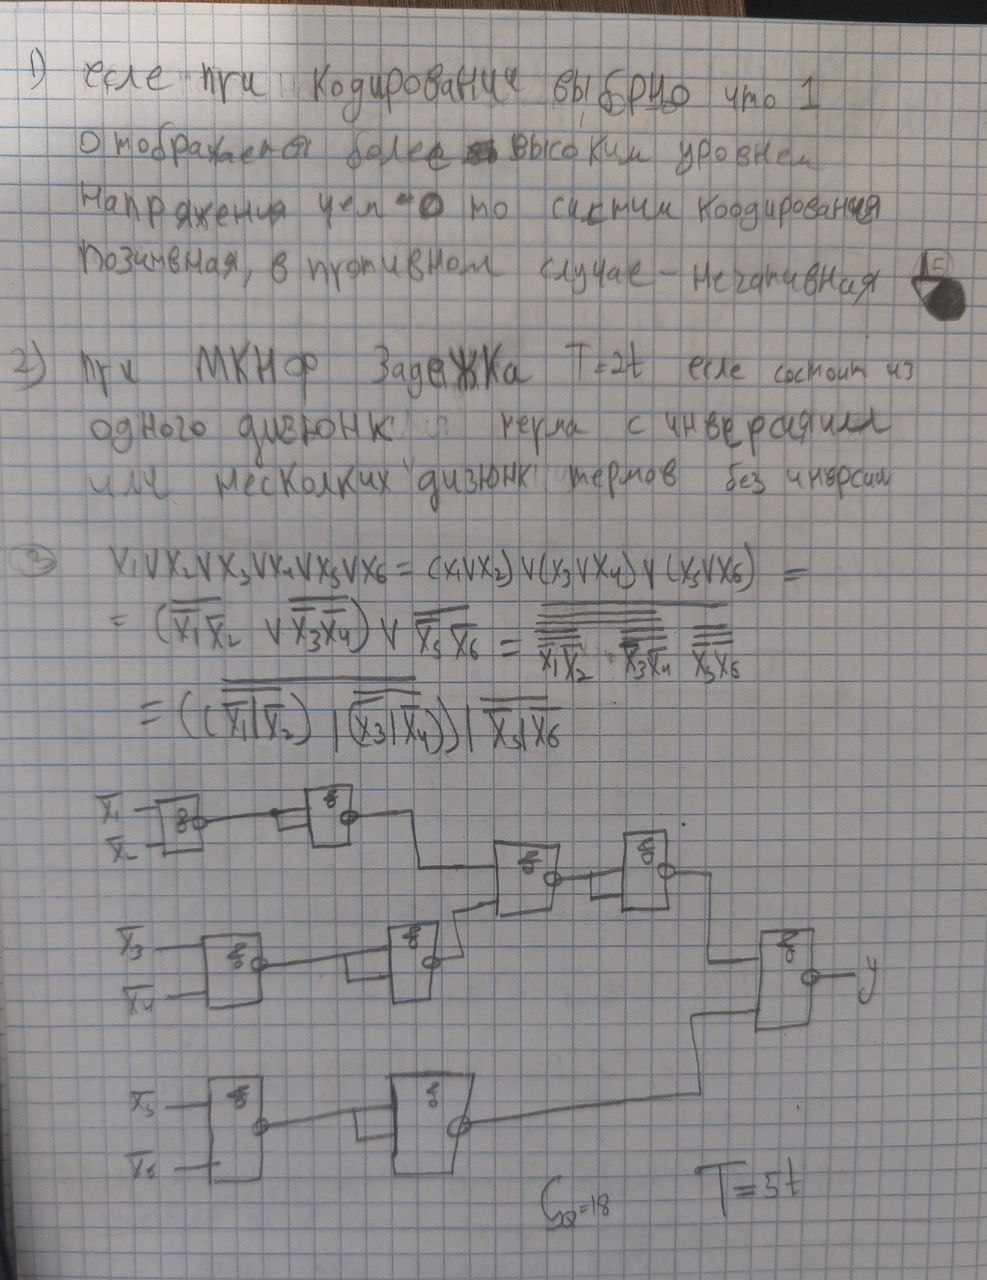 1) есле при кодировании выбрно что 1
отображается более высоким уровнем
напряжения чем 0 то систим коодирования
позитивная, в противном случае - негативная
2) при МКНФ Задежка T=2t есле состоит из
одного дизюнк терма с инверсиями
или несколких дизюнк термов без инверсии
3) X₁VX₂VX₃VX₄VX₅VX₆ = (X₁VX₂) V (X₃VX₄) V (X₅VX₆) =
= (X̅₁X̅₂ V X̅₃X̅₄) V X̅₅X̅₆ = X̅₁X̅₂ · X̅₃X̅₄ X̅₅X̅₆
= ((X̅₁|X̅₂) | (X̅₃|X̅₄)) | X̅₅|X̅₆
X̅₁
X̅₂
&
&
&
&
X̅₃
X̅₄
&
&
&
y
X̅₅
X̅₆
&
&
C_Q=18 T=5t